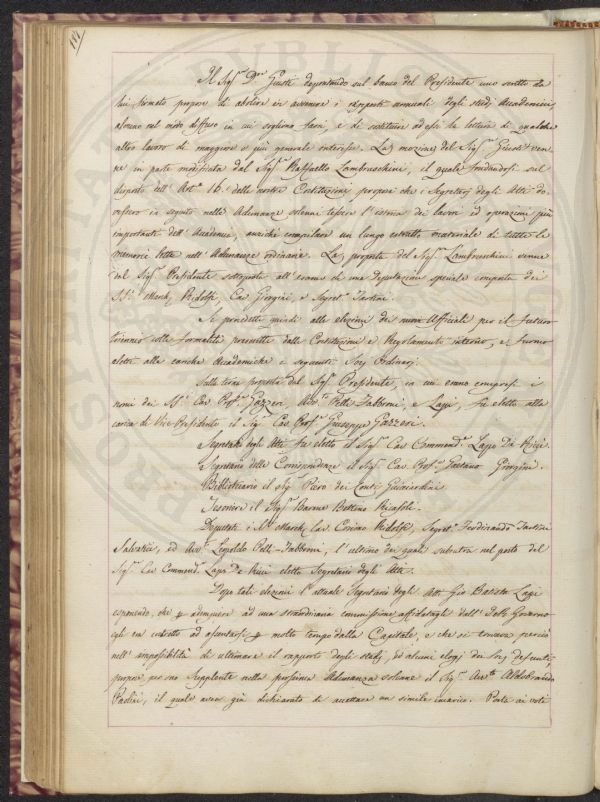 184
Il Sig.r D.re Giusti deponendo sul banco del Presidente uno scritto da
lui firmato propose di abolire in avvenire i rapporti annuali degli studj Accademici
almeno nel modo diffuso in cui sogliono farsi, e di sostituire ad essi la lettura di qualche
altro lavoro di maggiore e più generale interesse. La mozione del Sig.r Giusti ven-
ne in parte modificata dal Sig.r Raffaello Lambruschini, il quale fondandosi sul
disposto dell'Art.o 16. delle nostre Costituzioni propose che i Segretarj degli Atti do-
vessero in seguito nelle Adunanze solenni tessere l'istoria dei lavori ed operazioni più
importanti dell'Accademia, anzichè compilare un lungo estratto materiale di tutte le
memorie lette nell'Adunanze ordinarie. La proposta del Sig.r Lambruschini venne
dal Sig.r Presidente sottoposta all'esame di una Deputazione speciale composta dei
SS.i March. Ridolfi, Cav. Giorgini, e Segret.o Tartini.
Si procedette quindi alle elezioni dei nuovi Uffiziali per il futuro
triennio colle formalità prescritte dalle Costituzioni e Regolamenti interni, e furono
eletti alle cariche Accademiche i seguenti Socj Ordinarj.
Sulla terna proposta dal Sig.r Presidente, in cui erano compresi i
nomi dei SS.i Cav. Prof.re Gazzeri, Avv.to Pelli Fabbroni, e Lapi, fu eletto alla
carica di Vice-Presidente il Sig.r Cav. Prof.re Giuseppe Gazzeri.
Segretario degli Atti fu eletto il Sig.r Cav. Commend.e Lapo De Ricci.
Segretario delle Corrispondenze il Sig.r Cav. Prof.re Gaetano Giorgini.
Bibliotecario il Sig.r Piero dei Conti Guicciardini
Tesoriere il Sig.r Barone Bettino Ricasoli.
Deputati i SS.i March. Cav. Cosimo Ridolfi, Segret.o Ferdinando Tartini
Salvatici, ed Avv.to Leopoldo Pelli-Fabbroni, l'ultimo dei quali subentra nel posto del
Sig.r Cav. Commend.e Lapo De Ricci eletto Segretario degli Atti.
Dopo tali elezioni l'attuale Segretario degli Atti Gio. Batista Lapi
esponendo, che p adempiere ad una straordinaria commissione affidatagli dall'I. e R. Governo
egli era costretto ad assentarsi p molto tempo dalla Capitale, e che si trovava perciò
nell'impossibilità di ultimare il rapporto degli studj, ed alcuni elogj dei Socj defunti,
propose per suo Supplente nella prossima Adunanza solenne il Sig.r Avv.to Aldobrando
Paolini, il quale avea già dichiarato di accettare un simile incarico. Posta ai voti